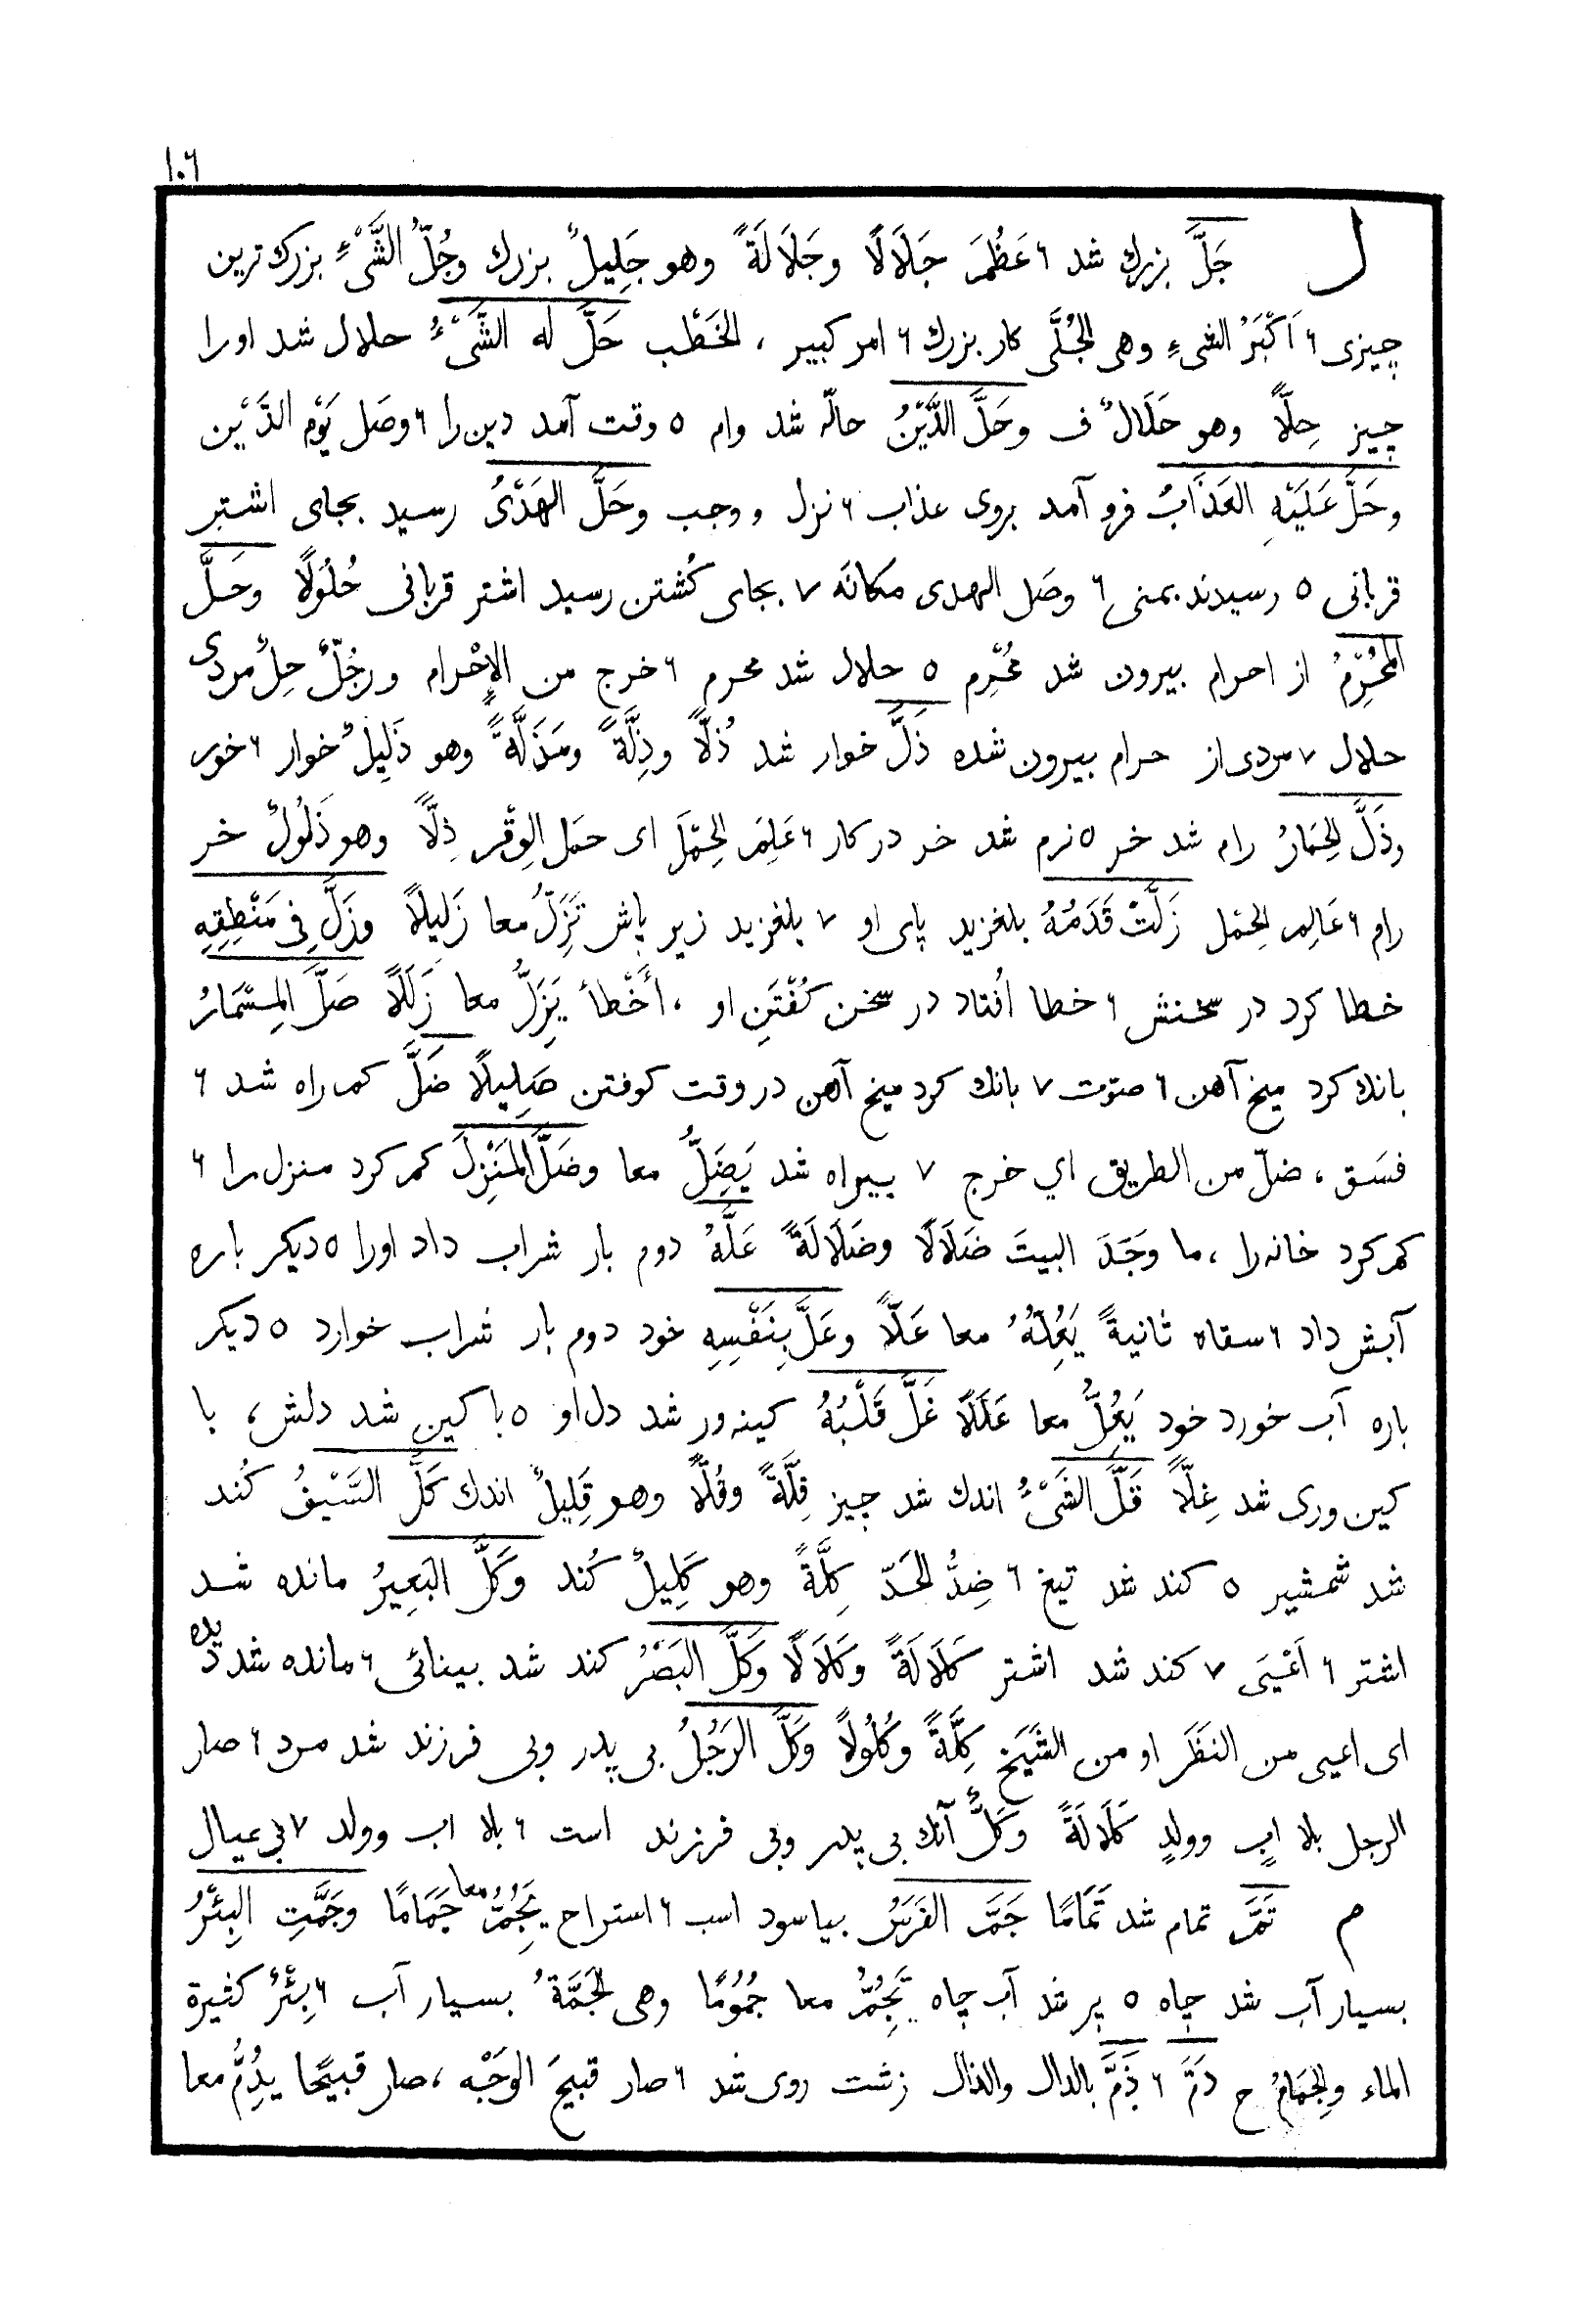 ١٠٦
ل جَلَّ بزرك شد ٦ عَظُمَ جَلَالًا وجَلَالَةً وهو جَلِيلٌ بزرك وجُلُّ الشَّىْءِ بزرك ترين
چيزى ٦ اَكْبَرُ الشىءِ وهى الجُلَّى كار بزرك ٦ امر كبير ، الخَطْب حَلَّ له الشَّىْءُ حلال شد اورا
چيز حِلًّا وهو حَلَالٌ ف وحَلَّ الدَّيْنُ حالّه شد وام ٥ وقت آمد دين را ٦ وصَل يَوْم الدَّيْن
وحَلَّ عَلَيْهِ العَذَابُ فرو آمد بروى عذاب ٦ نزل و وجب وحَلَّ الهَدْىُ رسيد بجاى اشتر
قربانى ٥ رسيدند بمنى ٦ وصَل الهدى مكانَه ٧ بجاى كُشتن رسيد اشتر قربانى حُلُولًا وحَلَّ
المُحْرِمُ از احرام بيرون شد مُحْرِم ٥ حلال شد محرم ٦ خرج من الإِحْرام ورجُلٌ حِلٌ مردى
حلال ٧ مردى از حرام بيرون شده ذَلَّ خوار شد ذُلًّا وذِلَّةً ومَذَلَّةً وهو ذَلِيلٌ خوار ٦ خور
وذَلَّ الحِمَارُ رام شد خر ٥ نرم شد خر در كار ٦ عَلِمَ الحِمْلَ اى حمَل الوِقْر ذِلًّا وهو ذَلُولٌ خر
رام ٦ عَالِم الحِمْل زَلَّتْ قَدَمُهُ بلغزيد پاى او ٧ بلغزيد زير پاش تَزِلُّ معا زَلِيلًا وزَلَّ فِى مَنْطِقِهِ
خطا كرد در سخنش ٦ خطا اُفتاد در سخن كُفْتَنِ او ، أَخْطأ يَزِلُّ معا زَلَلًا صَلَّ المِسْمَارُ
بانك كرد ميخ آهن ٦ صوّت ٧ بانك كرد ميخ آهن در وقت كوفتن صَلِيلًا ضَلَّ كم راه شد ٦
فسَق ، ضلّ من الطريق اي خرج ٧ بيراه شد يَضِلُّ معا وضَلَّ المَنْزِلَ كم كرد منزل را ٦
كم كرد خانه را ، ما وجَدَ البيتَ ضَلَالًا وضَلَالَةً عَلَّهُ دوم بار شراب داد اورا ٥ ديكر باره
آبش داد ٦ سقاه ثانيةً يَعُلّهُ معا عَلًّا وعَلَّ بِنَفْسِهِ خود دوم بار شراب خوارد ٥ ديكر
باره آب خورد خود يَعُلُّ معا عَلَلًا غَلَّ قَلْبُهُ كينه ور شد دل او ٥ با كين شد دلش ، با
كين ورى شد غِلًّا قَلَّ الشَىْءُ اندك شد چيز قِلَّةً وقُلًّا وهو قَلِيلٌ اندك كَلَّ السَّيْفُ كُند
شد شمشير ٥ كند شد تيغ ٦ ضِدُّ الحَدّ كِلَّةً وهو كَلِيلٌ كُند وكَلَّ البَعِيرُ مانده شد
اشتر ٦ اَعْيَى ٧ كند شد اشتر كَلَالَةً وكَلَالًا وكَلَّ البَصَرُ كند شد بينائى ٦ مانده شد ديده
اى اعيى من النَظَر او من الشَيخ كِلَّةً وكُلُولًا وكَلَّ الرَجُلُ بى پدر وبى فرزند شد مرد ٦ صار
الرجل بلا ابٍ وولدٍ كَلَالَةً وكَلٌّ آنك بى پدر وبى فرزند است ٦ بلا اب وولد ٧ بى عيال
م تَمَّ تمام شد تَمَامًا جَمَّ الفَرَسُ بياسود اسب ٦ استراح يَجُمُّ معا جَمَامًا وجَمَّتِ البِئْرُ
بسيار آب شد چاه ٥ پر شد آب چاه تَجُمُّ معا جُمُومًا وهى الجَمَّةُ بسيار آب ٦ بِئْرٌ كثيرة
الماء والجِمَامُ ج دَمَّ ٦ ذِمَّ بالدال والذال زشت روى شد ٦ صار قبيحَ الوَجْه ، صار قبيحًا يدُِمُّ معا